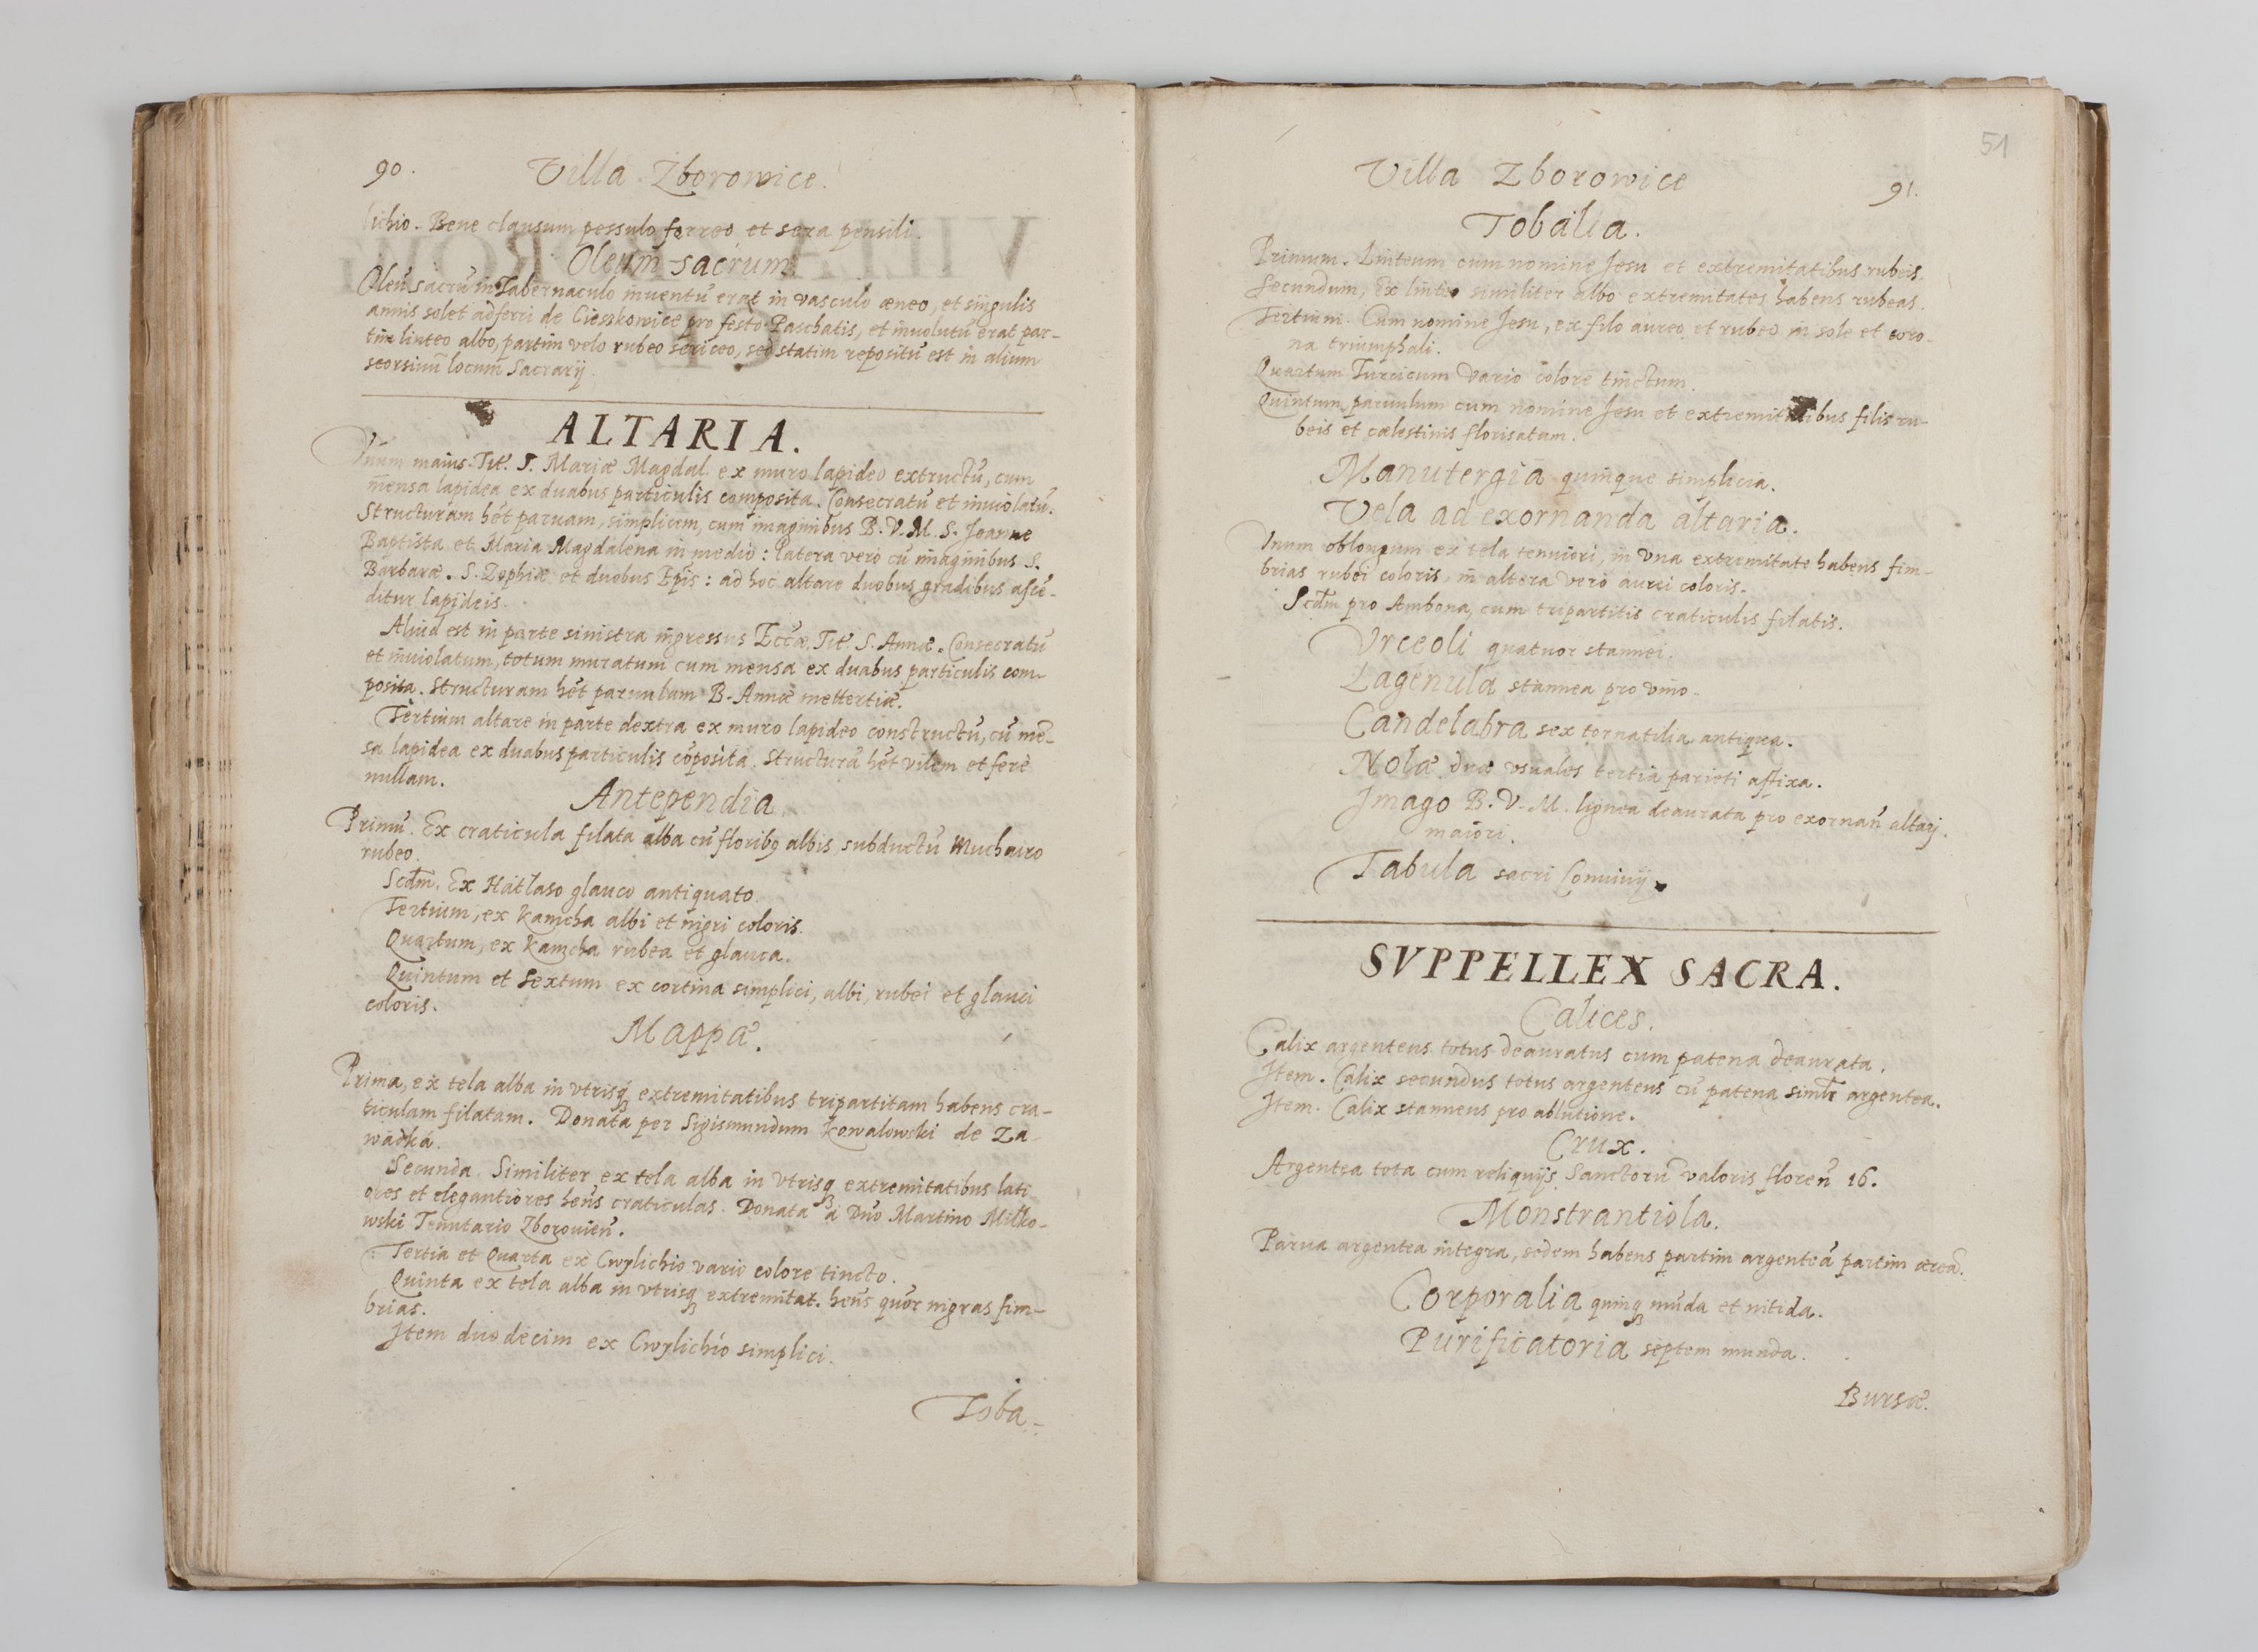 90.
Villa Zborowice.
lichio. Bene clausum pessulo ferreo, et sera pensili.
Oleum sacrum
Oleū sacrū in Tabernaculo inuentū erat in vasculo æneo, et singulis
annis solet adferri de Cieszkowice pro festo Paschatis, et inuolutū erat par-
tim linteo albo, partim velo rubeo sericeo, sed statim repositū est in alium
seorsiuū locum Sacrarij.
ALTARIA.
Vnum maius. Tit. S. Mariæ Magdal. ex muro lapideo extructū, cum
mensa lapidea ex duabus particulis composita. Consecratū et inuiolatū.
Structuram hēt paruam, simplicem, cum imaginibus B. V. M. S. Joanne
Baptista et Maria Magdalena in medio: latera verò cū imaginibus S.
Barbaræ. S. Zophiæ et duobus Epīs: ad hoc altare duobus gradibus ascē-
ditur lapideis.
Aliud est in parte sinistra ingressus Eccæ, Tit. S. Annæ. Consecratū
et inuiolatum, totum muratum cum mensa ex duabus particulis com-
posita. Structuram hēt paruulam B. Annæ mettertiæ.
Tertium altare in parte dextra ex muro lapideo constructū, cū mē-
sa lapidea ex duabus particulis cōposita. Structurā hēt vilem et ferè
nullam.
Antependia
Primū. Ex craticula filata alba cū floribꝫ albis, subductū Muchairo
rubeo.
Scdm. Ex Hatłaso glauco antiquato.
Tertium, ex Kamcha albi et nigri coloris.
Quartum, ex Kamcha rubea et glauca.
Quintum et Sextum ex cortina simplici, albi, rubei et glauci
coloris.
Mappæ.
Prima, ex tela alba in vtrisqꝫ extremitatibus tripartitam habens cra-
ticulam filatam. Donata per Sigismundum Kowalowski de Za
wadká.
Secunda. Similiter ex tela alba in vtrisqꝫ extremitatibus lati
ores et elegantiores hēns craticulas. Donata à Dnō Martino Milko-
wski Tenutario Zborouien̄.
Tertia et Quarta ex Cwylichio vario colore tincto.
Quinta ex tela alba in vtrisqꝫ extremitat. hēns quōr nigras fim-
brias.
Item duodecim ex Cwylichio simplici.
Toba-
51
Villa Zborowice
91.
Tobalia.
Primum. Linteum cum nomine Jesu et extremitatibus rubeis.
Secundum, Ex linteo similiter albo extremitates habens rubeas.
Tertium. Cum nomine Jesu, ex filo aureo et rubeo in sole et coro-
na triumphali.
Quartum Turcicum vario colore tinctum.
Quintum paruulum cum nomine Jesu et extremitatibus filis ru-
beis et cælestinis florisatam.
Manutergia quinque simplicia.
Vela ad exornanda altaria.
Vnum oblongum ex tela tenuiori, in vna extremitate habens fim-
brias rubei coloris, in altera verò aurei coloris.
Scdm pro Ambona, cum tripartitis craticulis filatis.
Vrceoli quatuor stannei.
Lagenula stannea pro vino.
Candelabra sex tornatilia antiqua.
Nolæ duæ vsuales tertia parieti affixa.
Imago B. V. M. lignea deaurata pro exornan̄ altarj.
maiori.
Tabula sacri Conuiuij.
SVPPELLEX SACRA.
Calices.
Calix argenteus totus deauratus cum patena deaurata.
Item. Calix secundus totus argenteus cū patena similr̄ argentea.
Item. Calix stanneus pro ablutione.
Crux.
Argentea tota cum reliquijs Sanctorū valoris floren̄ 16.
Monstrantiola.
Parua argentea integra, sedem habens partim argenteā partim æreā.
Corporalia quinqꝫ mūda et nitida.
Purificatoria septem munda.
Bursæ.